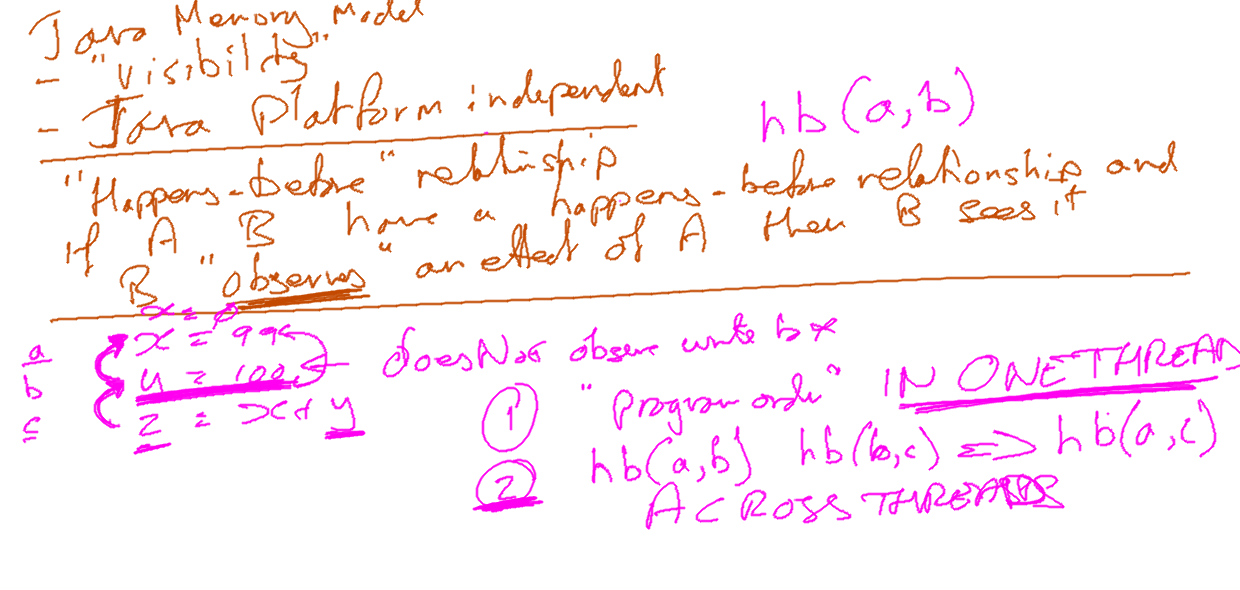 Java Memory Model
- "visibility"
- Java Platform independent
hb(a,b)
"Happens-before" relationship
if A B have a happens-before relationship and
B "observes" an effect of A then B sees it
x = 0
a x = 99
b y = 100 doesNot observe write to x
c z = x + y
1 "program order" IN ONE THREAD
2 hb(a,b) hb(b,c) => hb(a,c)
ACROSS THREADS